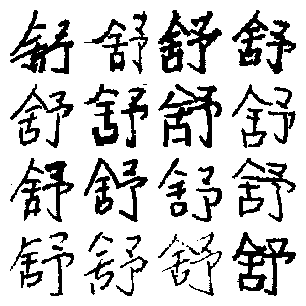 舒舒舒舒
舒舒舒舒
舒舒舒舒
舒舒舒舒